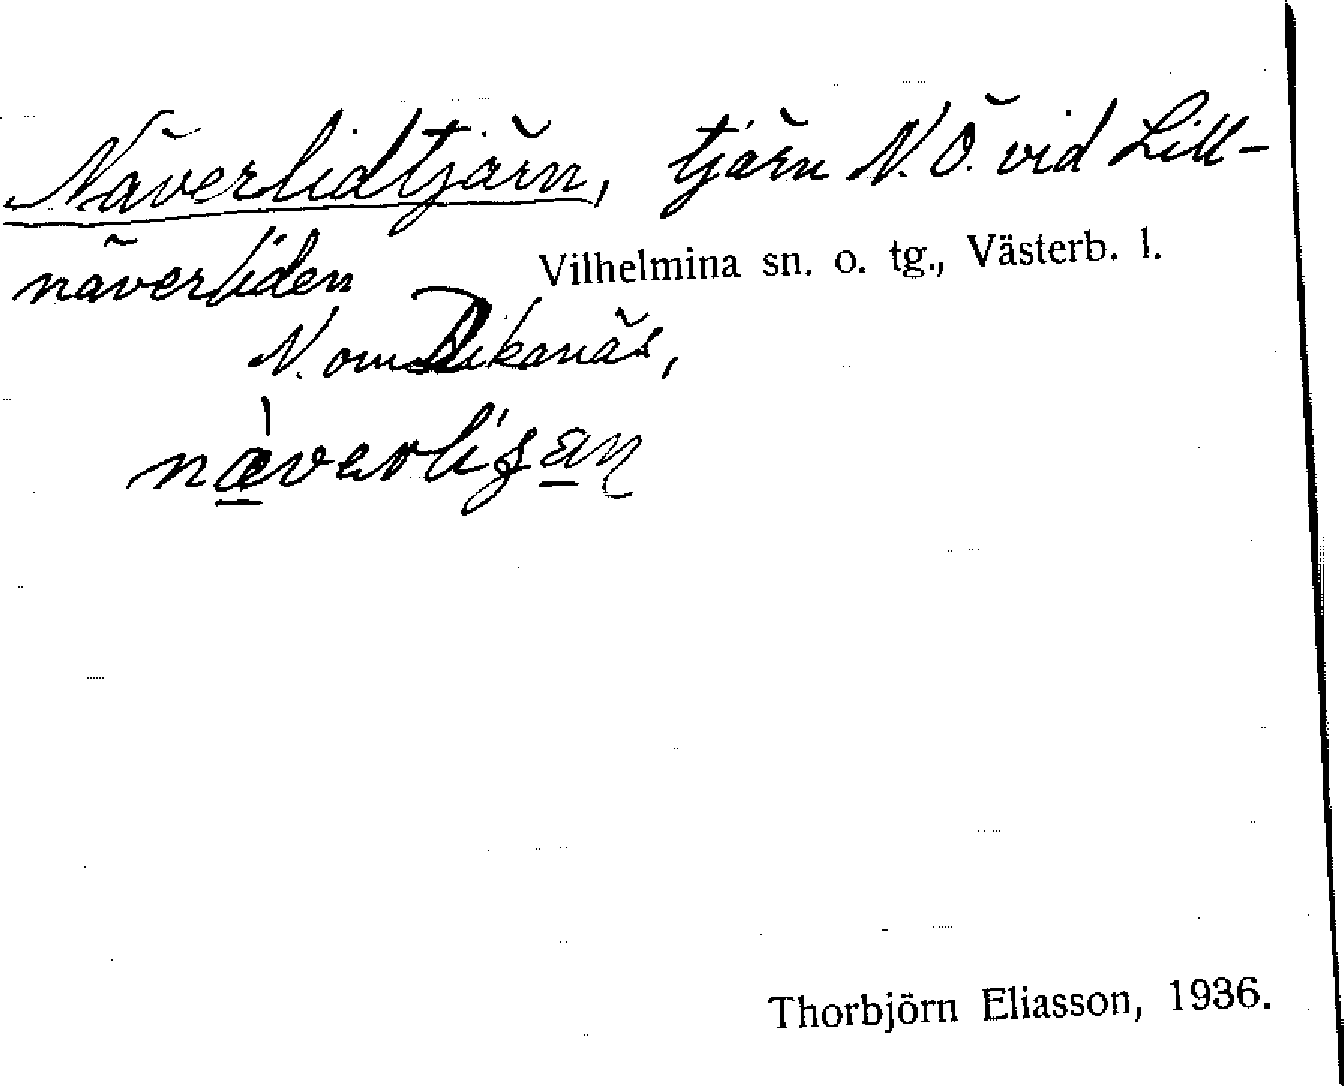 Näverlidtjärn, tjärn N.Ö. vid Lill-
näverliden Vilhelmina sn. o. tg., Västerb. l.
N. om Dikanäs,
Thorbjörn Eliasson, 1936.